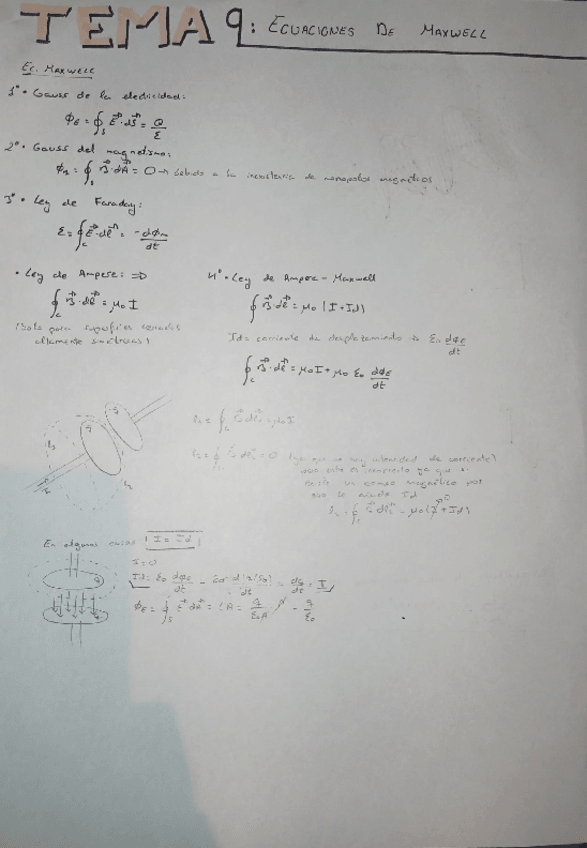 TEMA 9: ECUACIONES DE MAXWELL
Ec. Maxwell
1º • Gauss de la electricidad:
ϕ_E = ∮_S E⃗·dS⃗ = Q/ε
2º • Gauss del magnetismo:
ϕ_m = ∮_S B⃗·dA⃗ = 0 → debido a la inexistencia de monopolos magnéticos
3º • Ley de Faraday:
ε = ∮_C E⃗·dl⃗ = -dϕ_m/dt
• Ley de Ampere: ⇒
∮_C B⃗·dl⃗ = μ₀ I
(Solo para superficies cerradas
altamente simétricas)
4º • Ley de Ampere - Maxwell
∮ B⃗·dl⃗ = μ₀ (I + Id)
Id = corriente de desplazamiento → ε₀ dϕ_E/dt
∮_C B⃗·dl⃗ = μ₀ I + μ₀ ε₀ dϕ_E/dt
∮_C B⃗·dl⃗ = μ₀ I
∮_C B⃗·dl⃗ = 0 (ya que no hay intensidad de corriente)
∮_C B⃗·dl⃗ = μ₀ (I + Id)
En algunos casos | I = Id |
I = 0
Id = ε₀ dϕ_E/dt = dq/dt = I
ϕ_E = ∮_S E⃗·dA⃗ = EA = q/(ε₀A) · A = q/ε₀